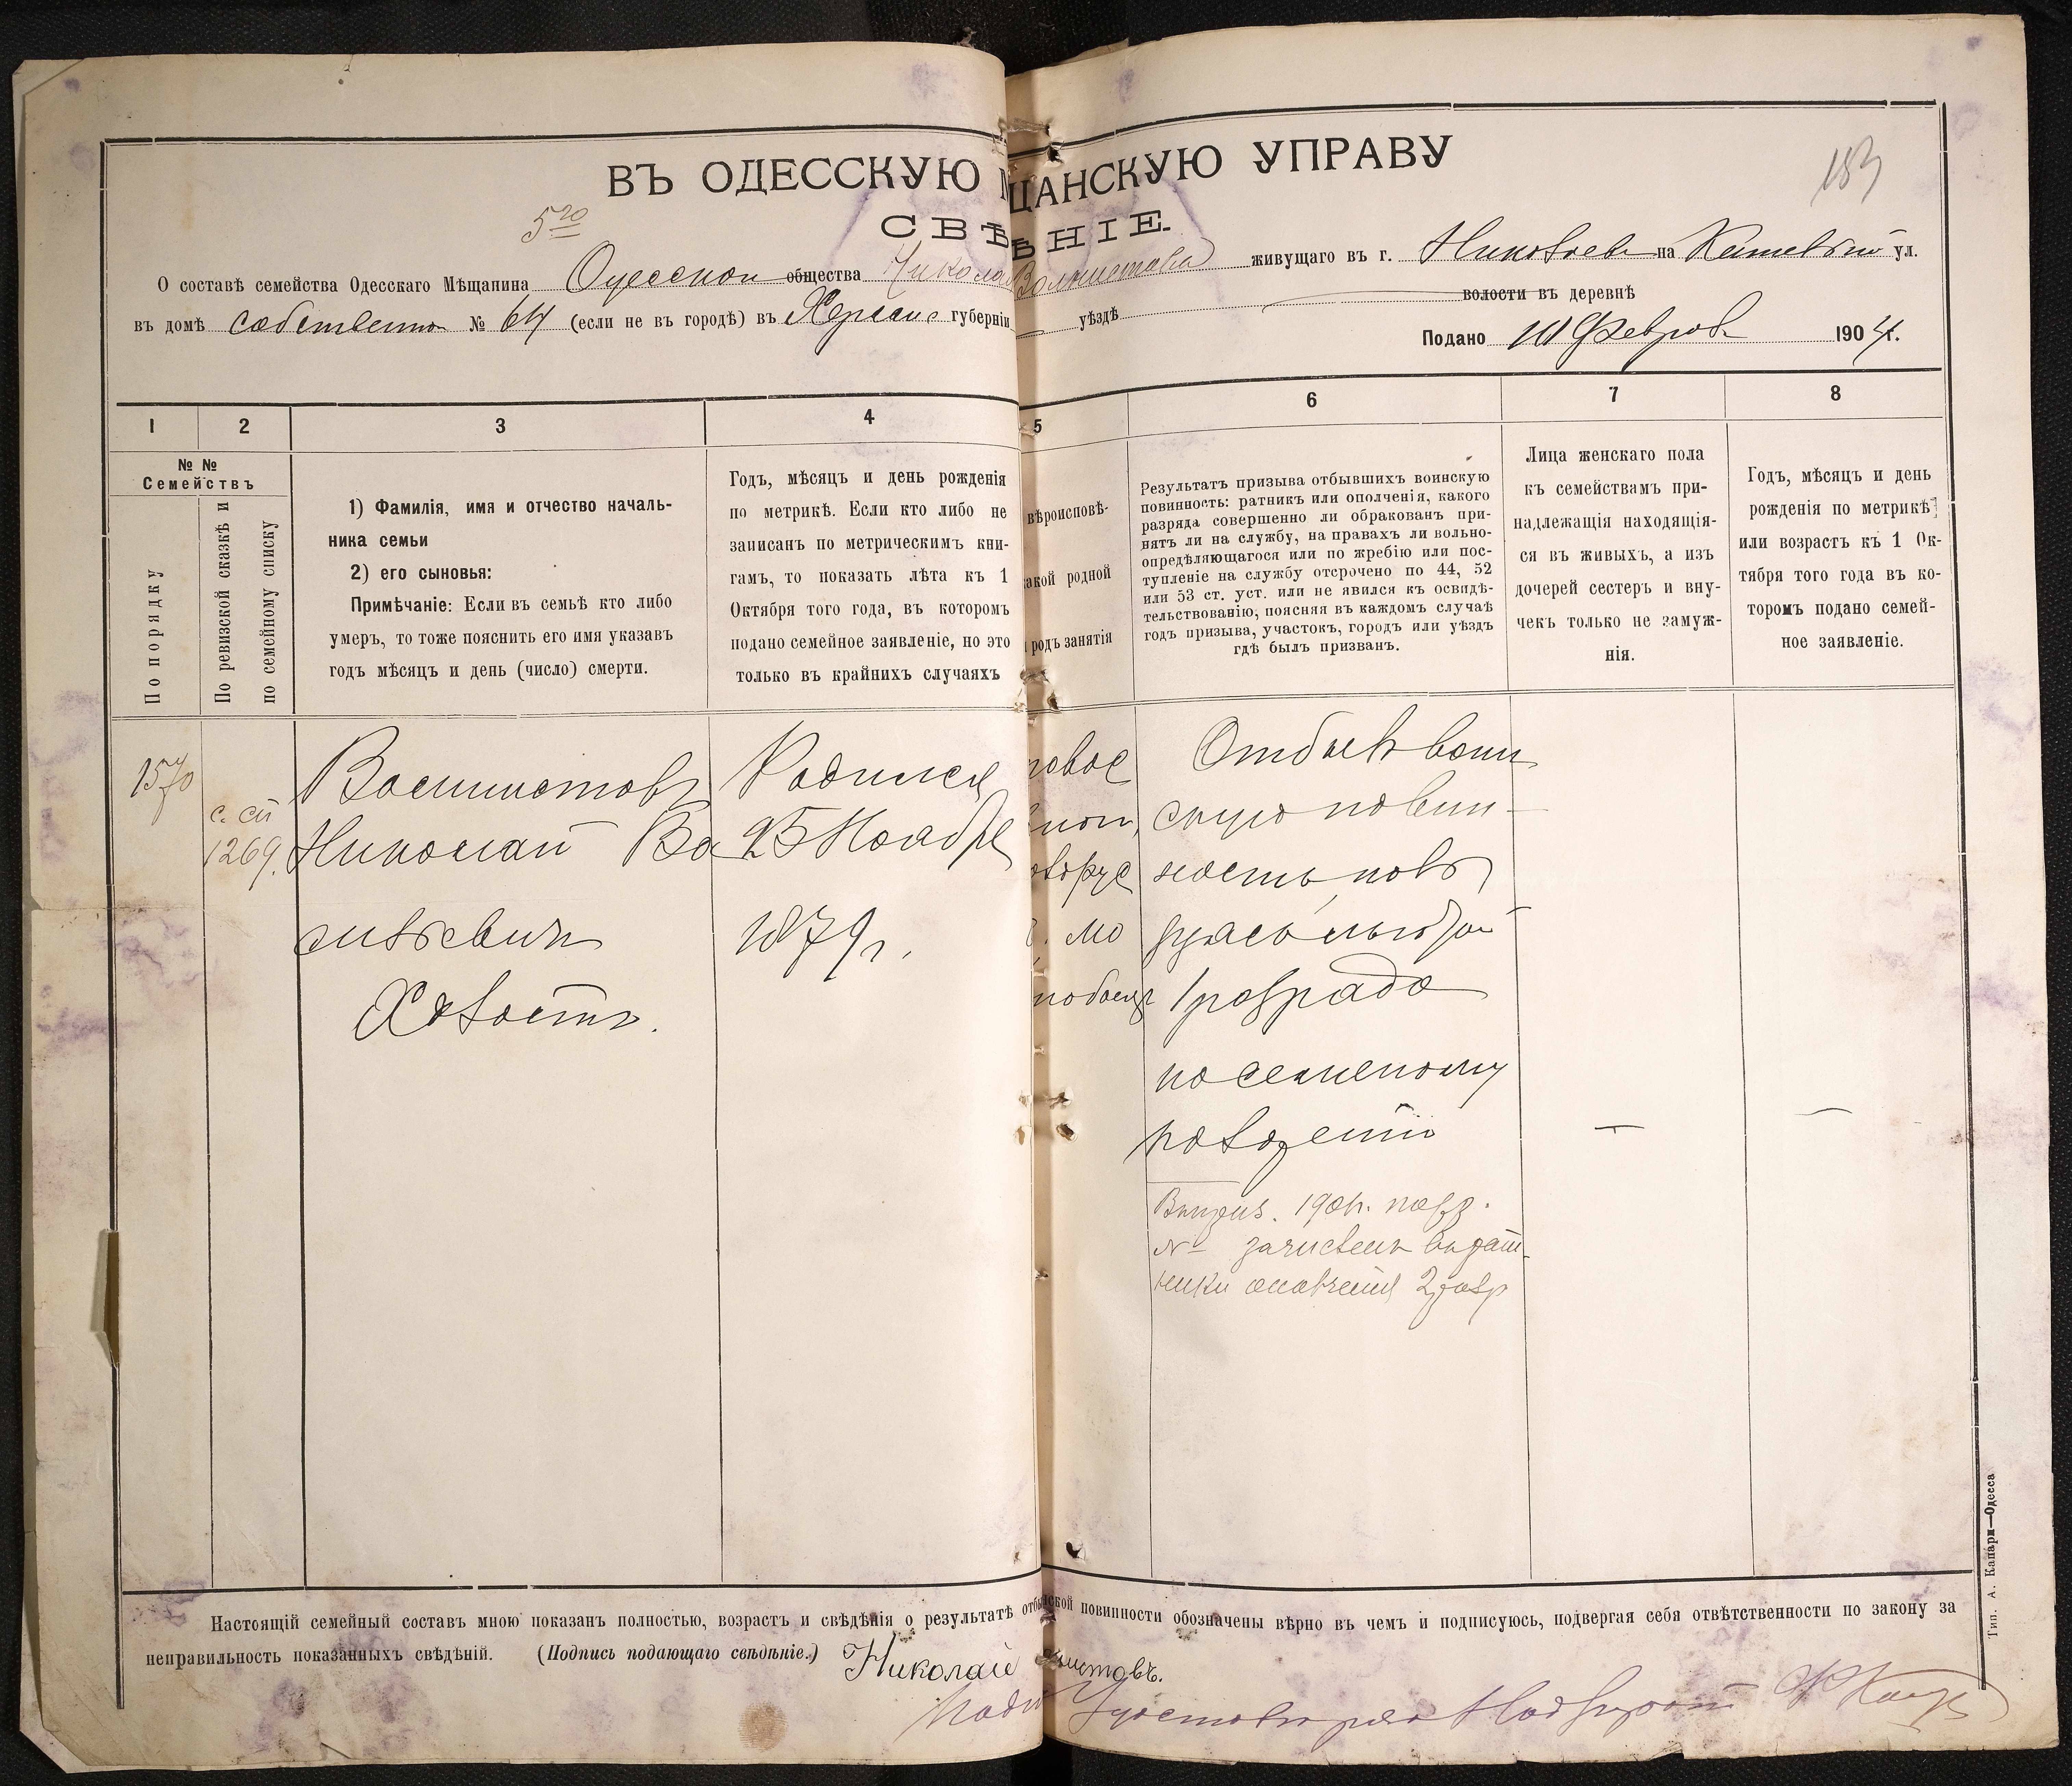 183
ВЪ ОДЕССКУЮ ЩАНСКУЮ УПРАВУ
СВѢ ѢНІЕ.
О составѣ семейства Одесскаго Мѣщанина Одесской общества живущаго въ г. Николаевѣ на ул.
въ домѣ собственном № 64 (если не въ городѣ) въ Херсонс губерніи уѣздѣ волости въ деревнѣ
Подано Феврал 1904 г.
1 2 3 4 5 6 7 8
№ №
Семействъ
По порядку
По ревизской сказкѣ и
по семейному списку
1) Фамилія, имя и отчество началь-
ника семьи
2) его сыновья:
Примѣчаніе: Если въ семьѣ кто либо
умеръ, то тоже пояснить его имя указавъ
годъ мѣсяцъ и день (число) смерти.
Годъ, мѣсяцъ и день рожденія
по метрикѣ. Если кто либо не
записанъ по метрическимъ кни-
гамъ, то показать лѣта къ 1
Октября того года, въ которомъ
подано семейное заявленіе, но это
только въ крайнихъ случаяхъ
вѣроисповѣ-
акой родной
родъ занятія
Результатъ призыва отбывшихъ воинскую
повинность: ратникъ или ополченія, какого
разряда совершенно ли обракованъ при-
нятъ ли на службу, на правахъ ли вольно-
опредѣляющагося или по жребію или пос-
тупленіе на службу отсрочено по 44, 52
или 53 ст. уст. или не явился къ освидѣ-
тельствованію, поясняя въ каждомъ случаѣ
годъ призыва, участокъ, городъ или уѣздъ
гдѣ былъ призванъ.
Лица женскаго пола
къ семействамъ при-
надлежащія находящія-
ся въ живыхъ, а изъ
дочерей сестеръ и вну-
чекъ только не замуж-
нія.
Годъ, мѣсяцъ и день
рожденія по метрикѣ
или возрастъ къ 1 Ок-
тября того года въ ко-
торомъ подано семей-
ное заявленіе.
1570
с. сп
1269.
Николай Ва
сильевичъ
Холостъ.
Родился
25 Ноября
1879 г.
Отбылъ воин
скую повин-
ность
1 разряда
по семейному
зачисленъ въ рат-
ники ополченія 2 разр
Настоящій семейный составъ мною показанъ полностью, возрастъ и свѣдѣнія о результатѣ отбы нской повинности обозначены вѣрно въ чемъ и подписуюсь, подвергая себя отвѣтственности по закону за
неправильность показанныхъ свѣдѣній. (Подпись подающаго свѣдѣніе.) Николай
Тип. А. Капари—Одесса